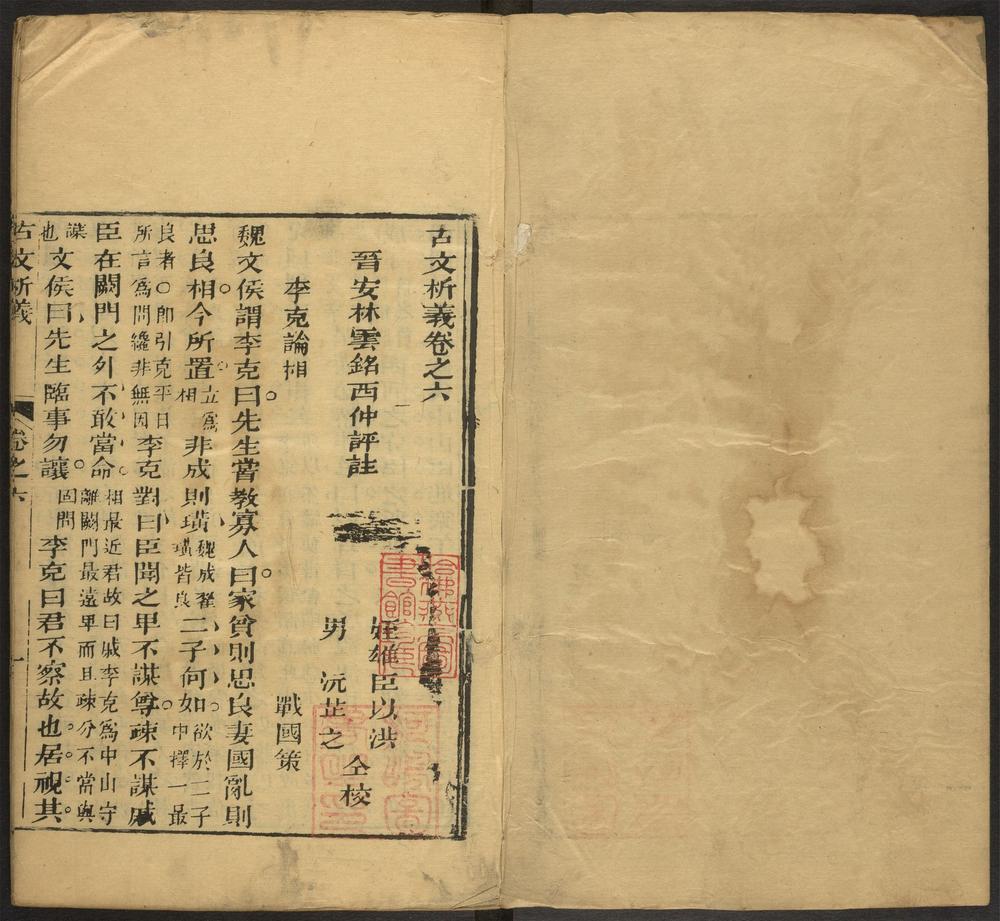 古文析義卷之六
晉安林雲銘西仲評註
姪雄臣以洪
男 沅芷之 仝校
李克論相 戰國策
魏文侯謂李克曰先生嘗教寡人曰家貧則思良妻國亂則
思良相今所置立爲相非成則璜魏成翟璜皆良二子何如欲於二子中擇一最
良者○卽引克平日所言爲問纔非無因李克對曰臣聞之卑不謀尊疎不謀戚
臣在闕門之外不敢當命相最近君故曰戚李克爲中山守離闕門最遠卑而且疎分不當與
謀也文侯曰先生臨事勿讓固問李克曰君不察故也居視其
古文析義 卷之六 一